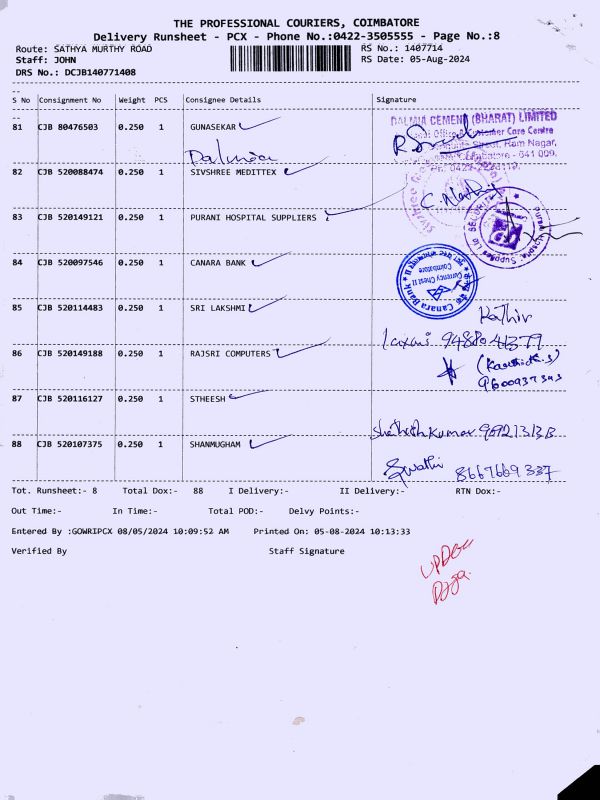 THE PROFESSIONAL COURIERS, COIMBATORE
Delivery Runsheet - PCX - Phone No.:0422-3505555 - Page No.:8
Route: SATHYA MURTHY ROAD
RS No.: 1407714
Staff: JOHN
RS Date: 05-Aug-2024
DRS No.: DCJB140771408
S No Consignment No Weight PCS Consignee Details Signature
81 CJB 80476503 0.250 1 GUNASEKAR
Dalmia
DALMIA CEMENT (BHARAT) LIMITED
Customer Care Centre
Street, Ram Nagar,
Coimbatore - 641 009.
82 CJB 520088474 0.250 1 SIVSHREE MEDITTEX
83 CJB 520149121 0.250 1 PURANI HOSPITAL SUPPLIERS
84 CJB 520097546 0.250 1 CANARA BANK
Canara Bank
Currency Chest II
Coimbatore
85 CJB 520114483 0.250 1 SRI LAKSHMI
Kathir
86 CJB 520149188 0.250 1 RAJSRI COMPUTERS
87 CJB 520116127 0.250 1 STHEESH
88 CJB 520107375 0.250 1 SHANMUGHAM
Swathi 8667669337
Tot. Runsheet:- 8 Total Dox:- 88 I Delivery:- II Delivery:- RTN Dox:-
Out Time:- In Time:- Total POD:- Delvy Points:-
Entered By :GOWRIPCX 08/05/2024 10:09:52 AM Printed On: 05-08-2024 10:13:33
Verified By Staff Signature